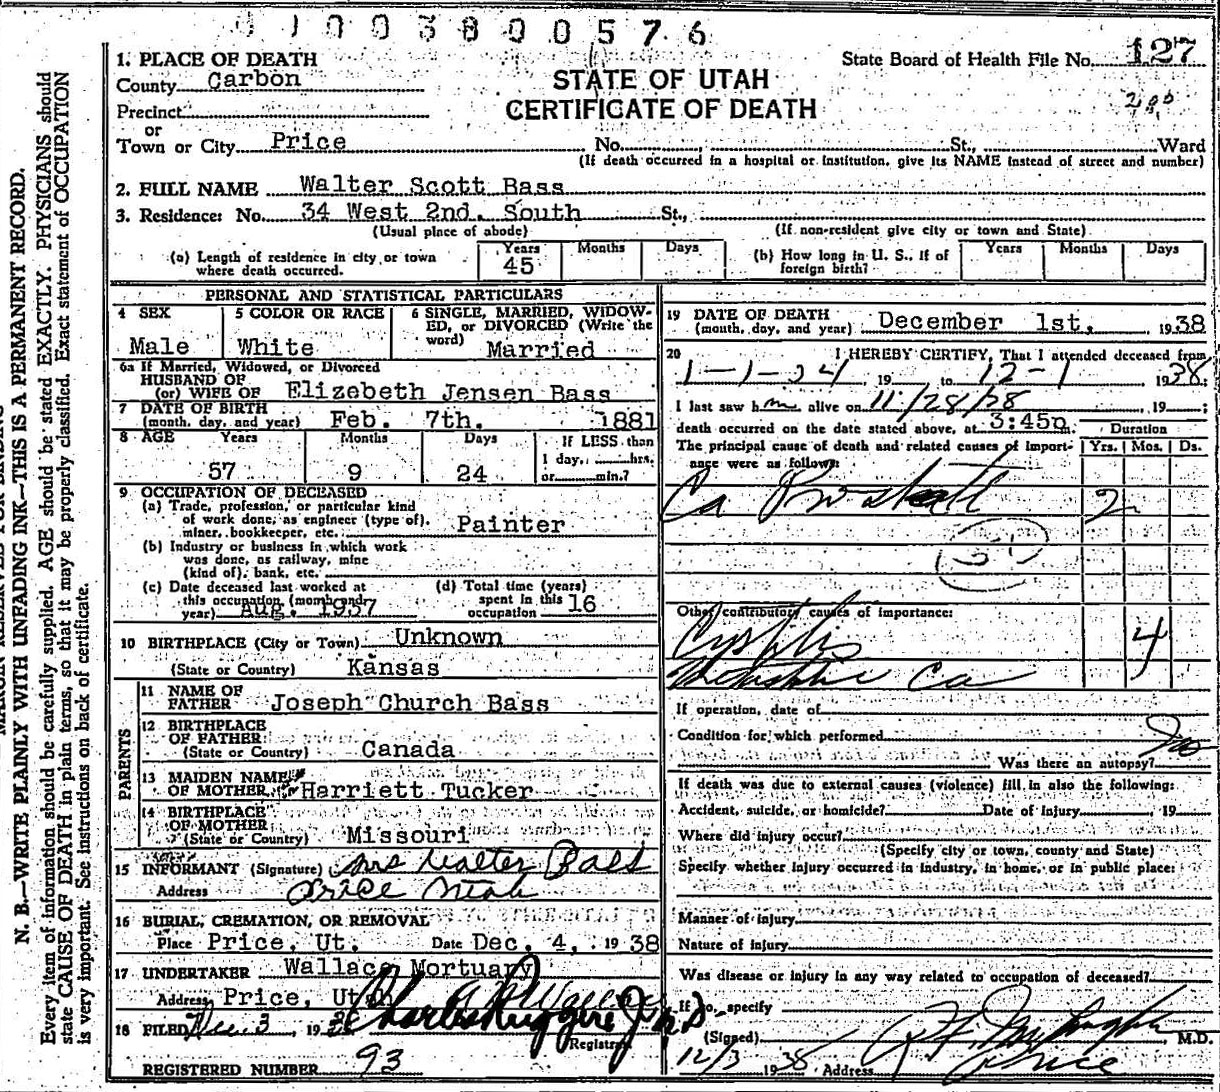 01003800576
1. PLACE OF DEATH
County Carbon
Precinct
or
Town or City Price
STATE OF UTAH
CERTIFICATE OF DEATH
State Board of Health File No. 127
200
No. St., Ward
(If death occurred in a hospital or institution, give its NAME instead of street and number)
2. FULL NAME Walter Scott Bass
3. Residence: No. 34 West 2nd. South St.,
(Usual place of abode) (If non-resident give city or town and State)
(a) Length of residence in city or town where death occurred. Years 45 Months Days
(b) How long in U. S., if of foreign birth? Years Months Days
PERSONAL AND STATISTICAL PARTICULARS
4 SEX Male
5 COLOR OR RACE White
6 SINGLE, MARRIED, WIDOWED, or DIVORCED (Write the word) Married
6a If Married, Widowed, or Divorced
HUSBAND OF
(or) WIFE OF Elizebeth Jensen Bass
7 DATE OF BIRTH
(month, day, and year) Feb. 7th. 1881
8 AGE Years 57 Months 9 Days 24
If LESS than
1 day, hrs.
or min.?
9 OCCUPATION OF DECEASED
(a) Trade, profession, or particular kind
of work done, as engineer (type of),
miner, bookkeeper, etc. Painter
(b) Industry or business in which work
was done, as railway, mine
(kind of), bank, etc.
(c) Date deceased last worked at
this occupation (month and
year) Aug. 1937
(d) Total time (years)
spent in this
occupation 16
10 BIRTHPLACE (City or Town) Unknown
(State or Country) Kansas
PARENTS
11 NAME OF
FATHER Joseph Church Bass
12 BIRTHPLACE
OF FATHER
(State or Country) Canada
13 MAIDEN NAME
OF MOTHER Harriett Tucker
14 BIRTHPLACE
OF MOTHER
(State or Country) Missouri
15 INFORMANT (Signature) Mrs Walter Bass
Address Price Utah
16 BURIAL, CREMATION, OR REMOVAL
Place Price, Ut. Date Dec. 4, 1938
17 UNDERTAKER Wallace Mortuary
Address Price, Utah
18 FILED Dec. 3 19 38 Charles Ruggeri Jr. M.D.
Registrar
REGISTERED NUMBER 93
19 DATE OF DEATH
(month, day, and year) December 1st, 1938
20 I HEREBY CERTIFY, That I attended deceased from
1-1-34 19 to 12-1 1938;
I last saw him alive on 11/28/38, 19 ;
death occurred on the date stated above, at 3:45p.
The principal cause of death and related causes of importance were as follows:
Duration
Yrs. Mos. Ds.
Ca Prostate 2
51
Other contributory causes of importance:
Cystitis 4
Ca
If operation, date of
Condition for which performed
Was there an autopsy? No
If death was due to external causes (violence) fill in also the following:
Accident, suicide, or homicide? Date of injury , 19
Where did injury occur?
(Specify city or town, county and State)
Specify whether injury occurred in industry, in home, or in public place:
Manner of injury
Nature of injury
Was disease or injury in any way related to occupation of deceased?
If so, specify
(Signed) , M.D.
12/3 1938 Address Price
N. B.—WRITE PLAINLY WITH UNFADING INK—THIS IS A PERMANENT RECORD.
Every item of information should be carefully supplied. AGE should be stated EXACTLY. PHYSICIANS should
state CAUSE OF DEATH in plain terms, so that it may be properly classified. Exact statement of OCCUPATION
is very important. See instructions on back of certificate.